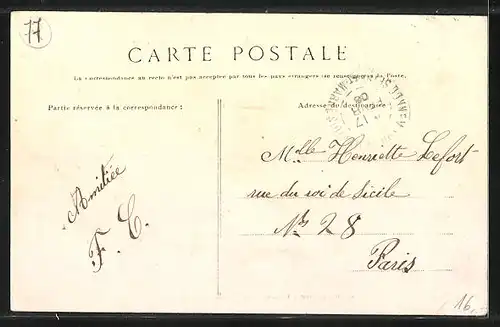 77
CARTE POSTALE
La correspondance au recto n'est pas acceptée par tous les pays étrangers (se renseigner à la Poste.
Partie réservée à la correspondance :
Adresse du destinataire
Amitiée
F. C.
Melle Henriette Lefort
rue du roi de Sicile
No 28
Paris
16